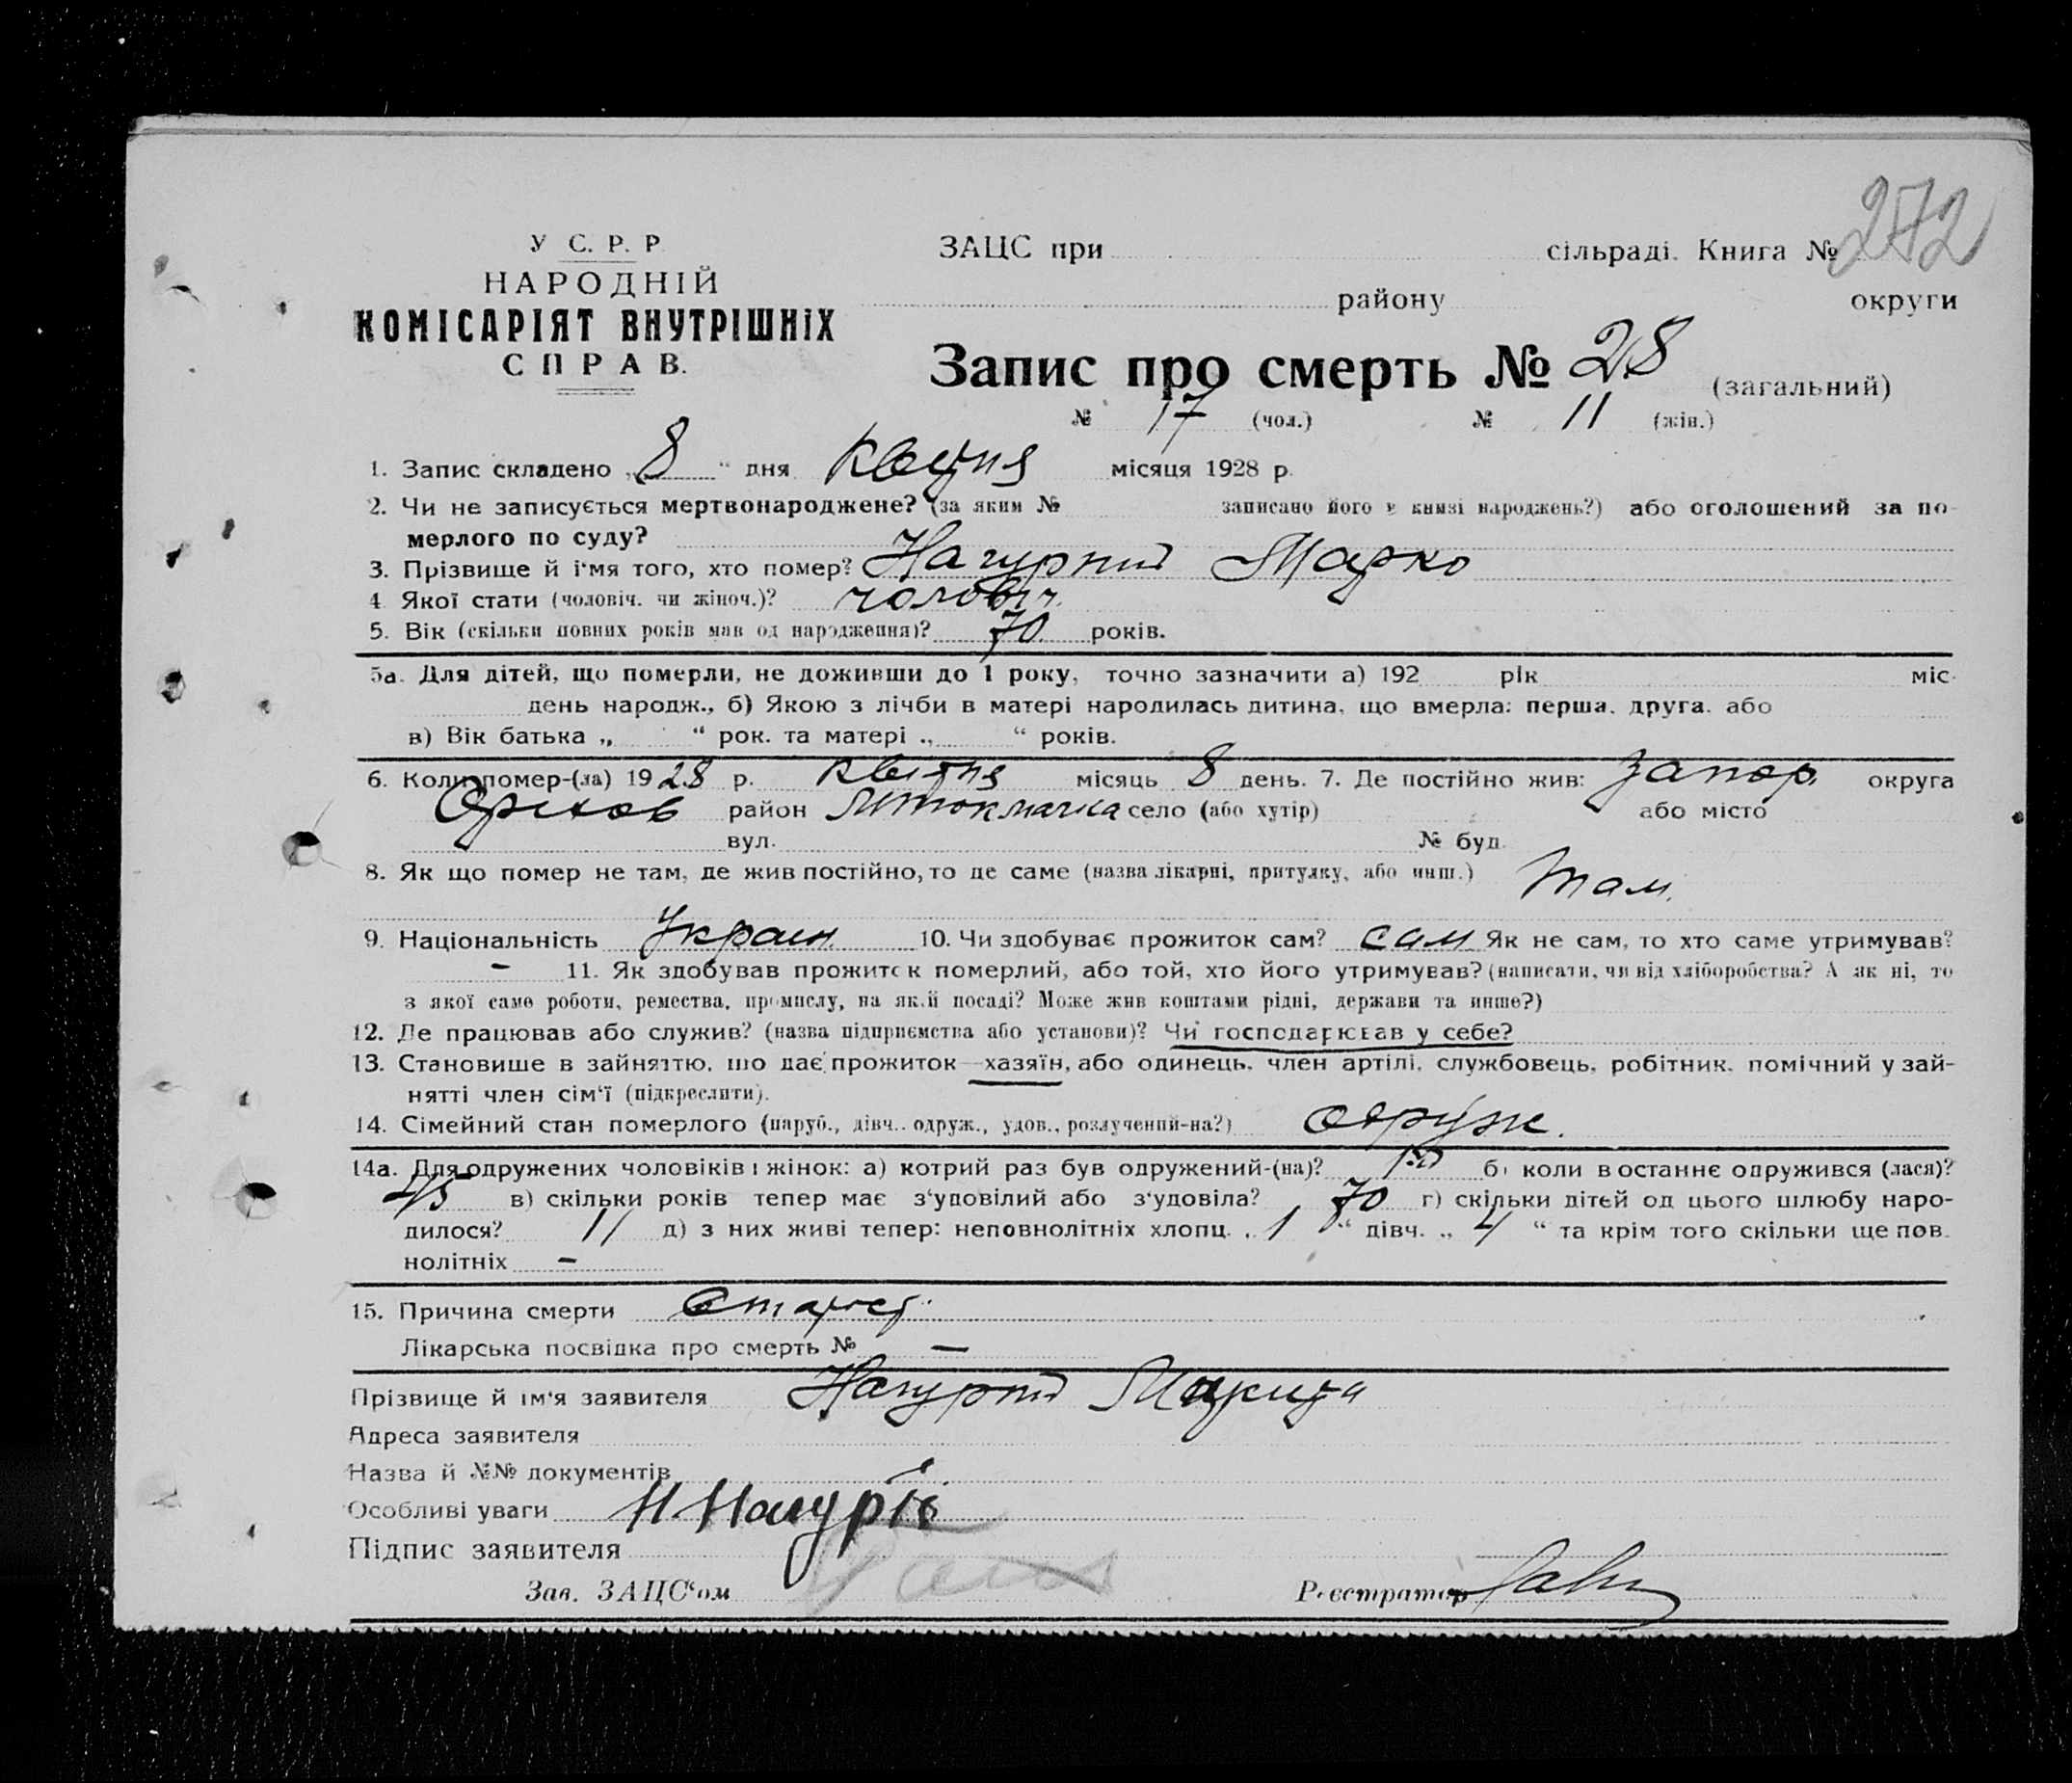 272
У С. Р. Р
НАРОДНІЙ
КОМІСАРІЯТ ВНУТРІШНІХ
СПРАВ.
ЗАЦС при сільраді. Книга №
району округи
Запис про смерть № 28 (загальний)
№ 17 (чол.) № 11 (жін.)
1. Запис складено „8“ дня Квітня місяця 1928 р.
2. Чи не записується мертвонароджене? (за яким № записано його в книзі народжень?) або оголошений за по-
мерлого по суду?
3. Прізвище й і'мя того, хто помер? Нагурний Марко
4 Якої стати (чоловіч. чи жіноч.)? чоловіч.
5. Вік (скільки повних років мав од народження)? 70 років.
5а. Для дітей, що померли, не доживши до 1 року, точно зазначити а) 192 рік міс-
день народж., б) Якою з лічби в матері народилась дитина, що вмерла: перша, друга, або
в) Вік батька „ “ рок. та матері „ “ років.
6. Коли помер-(ла) 1928 р. квітня місяць 8 день. 7. Де постійно жив: Запор. округа
Оріхов район М Токмачка село (або хутір) або місто
вул. № буд.
8. Як що помер не там, де жив постійно, то де саме (назва лікарні, притулку, або инш.) там.
9. Національність Україн. 10. Чи здобуває прожиток сам? сам Як не сам, то хто саме утримував?
– 11. Як здобував прожиток померлий, або той, хто його утримував? (написати, чи від хліборобства? А як ні, то
з якої саме роботи, ремества, промислу, на якій посаді? Може жив коштами рідні, держави та инше?)
12. Де працював або служив? (назва підприємства або установи)? Чи господарював у себе?
13. Становище в зайняттю, що дає прожиток—хазяїн, або одинець, член артілі, службовець, робітник, помічний у зай-
нятті член сім'ї (підкреслити).
14. Сімейний стан померлого (паруб., дівч., одруж., удов., розлучений-на?) одруж.
14а. Для одружених чоловіків і жінок: а) котрий раз був одружений-(на)? 1й б) коли востаннє одружився (лася)?
45 в) скільки років тепер має з'удовілий або з'удовіла? 70 г) скільки дітей од цього шлюбу наро-
дилося? 11 д) з них живі тепер: неповнолітніх хлопц. „1“ дівч. „4“ та крім того скільки ще пов-
нолітніх –
15. Причина смерти Старіст.
Лікарська посвідка про смерть № –
Прізвище й ім'я заявителя Нагурний Микита
Адреса заявителя
Назва й №№ документів
Особливі уваги Н Нагурній
Підпис заявителя
Зав. ЗАЦС'ом Реєстратор